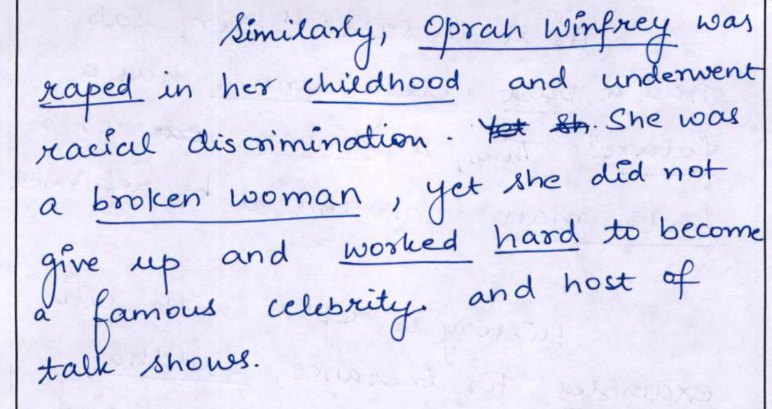 Similarly, Oprah Winfrey was
raped in her childhood and underwent
racial discrimination. Yet sh. She was
a broken woman, yet she did not
give up and worked hard to become
a famous celebrity and host of
talk shows.